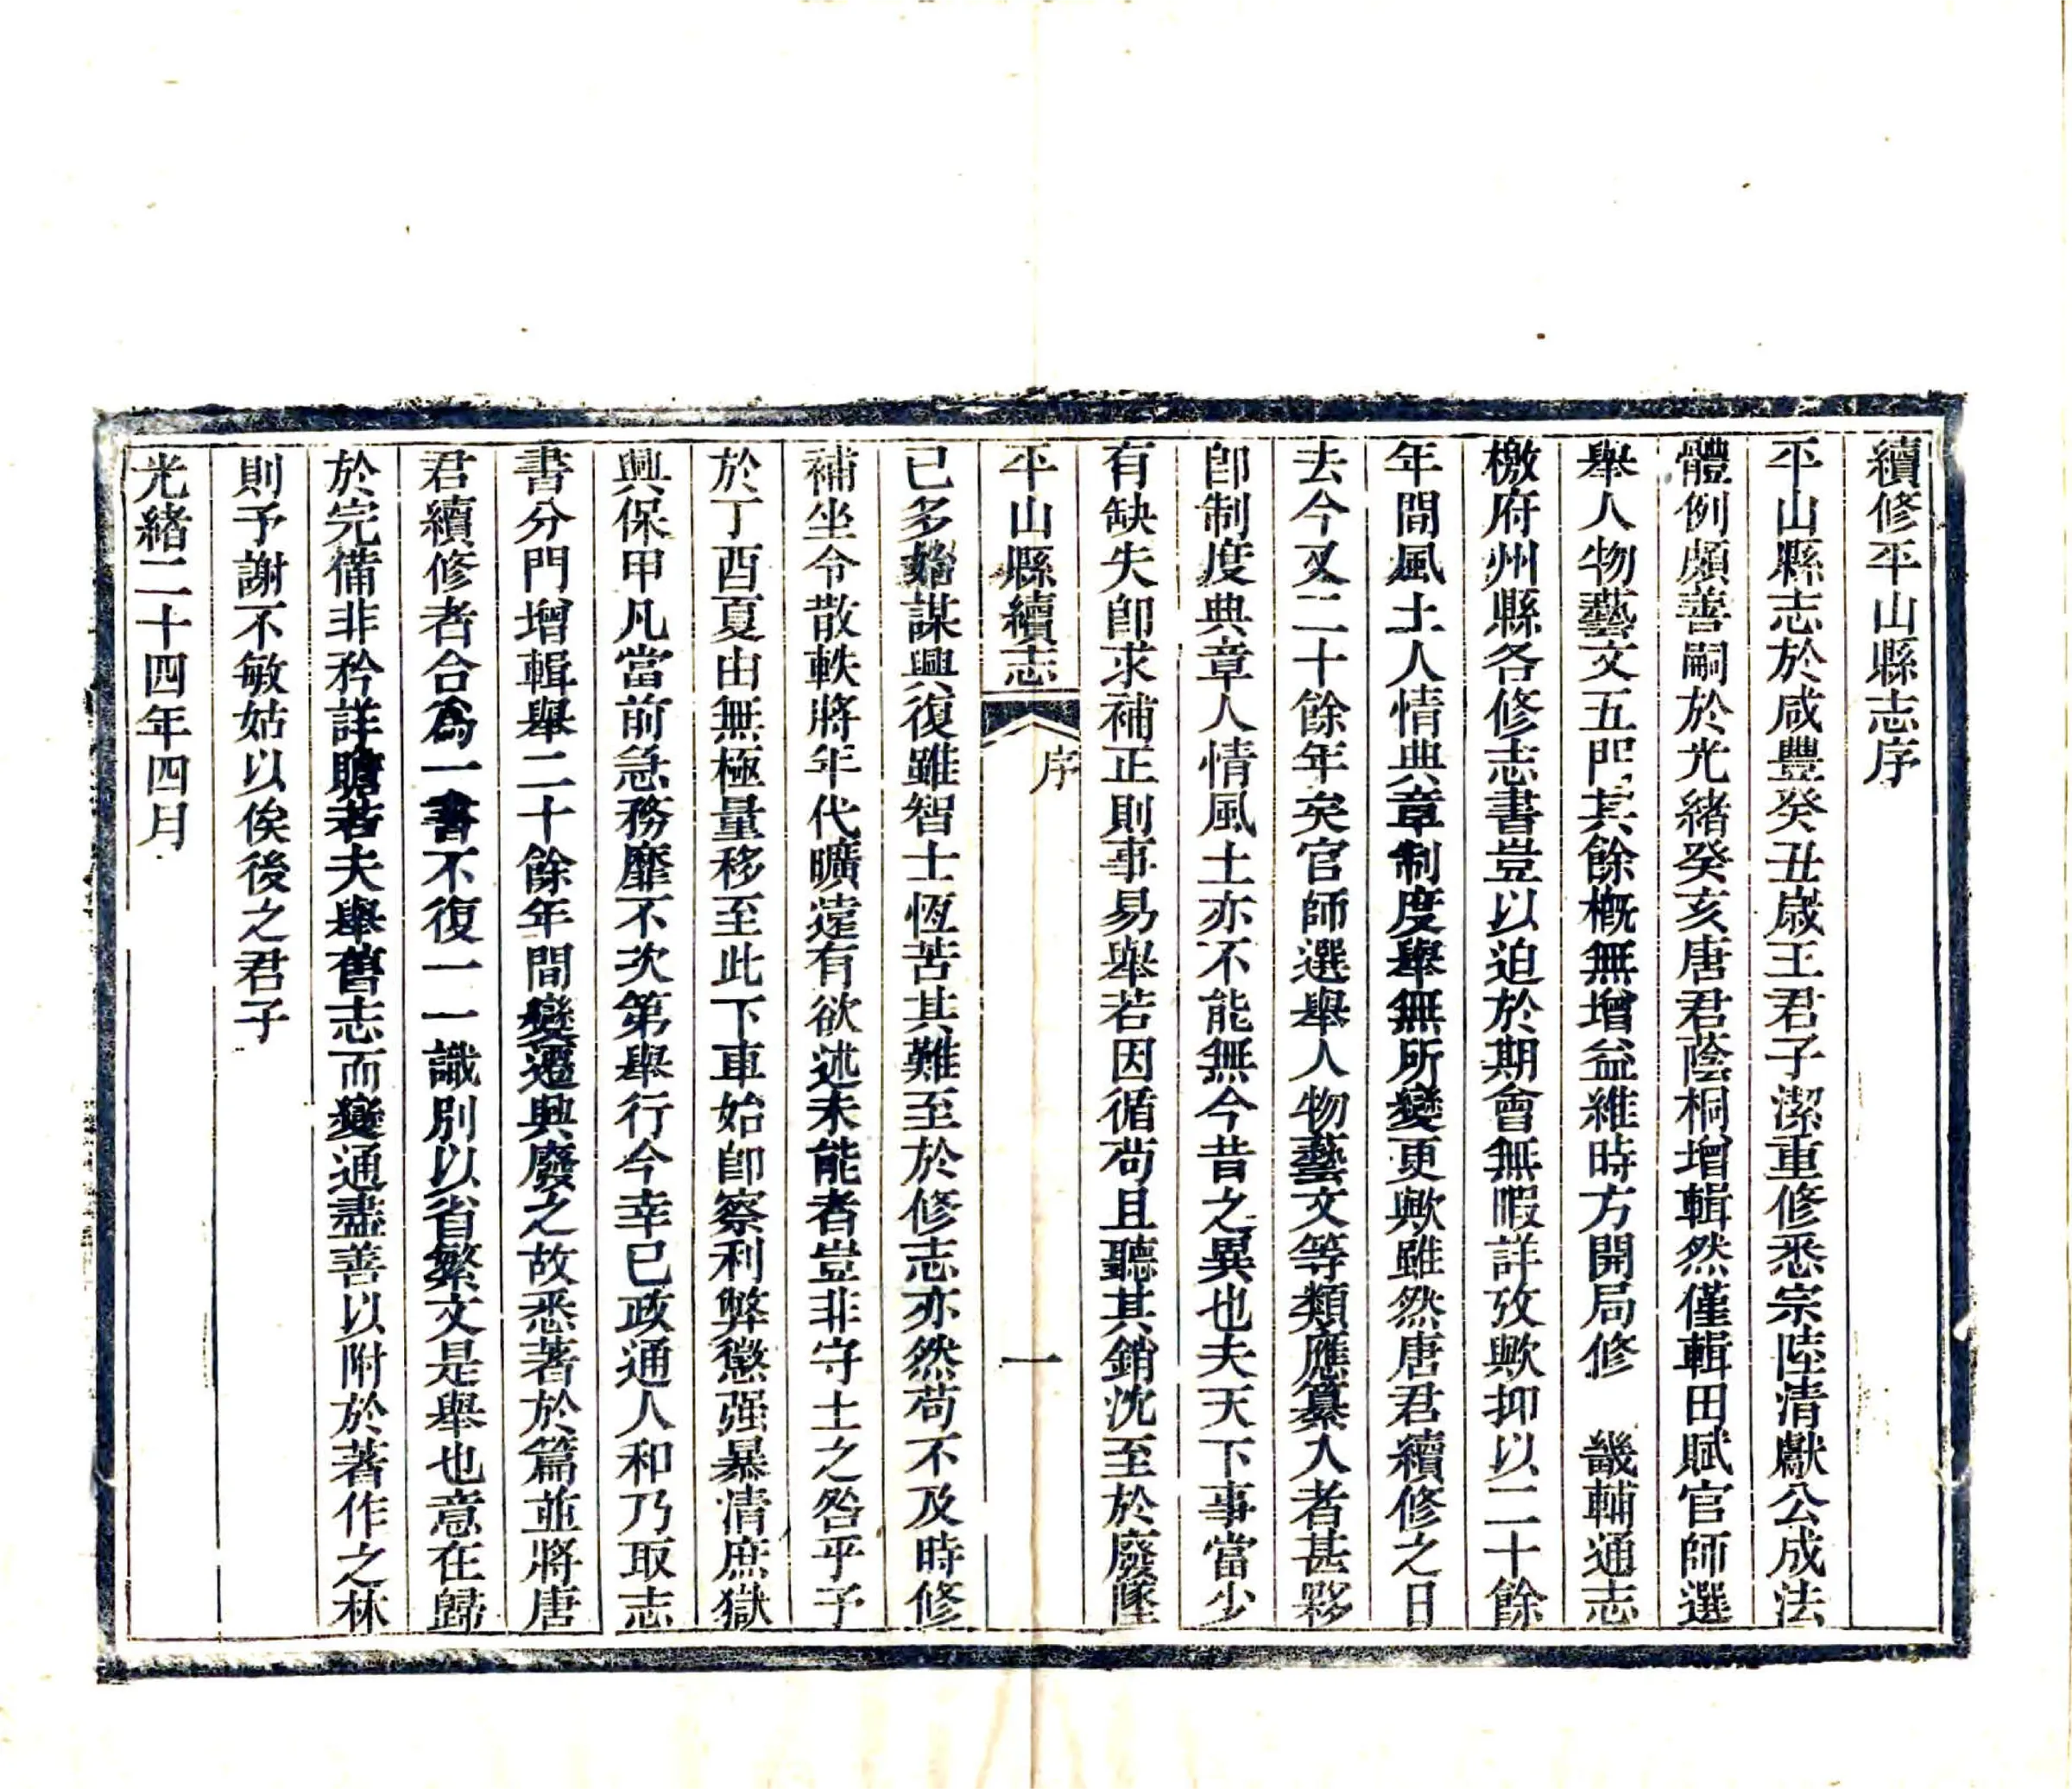 續修平山縣志序
平山縣志於咸豐癸丑歲王君子潔重修悉宗陸清獻公成法
體例頗善嗣於光緖癸亥唐君蔭桐增輯然僅輯田賦官師選
舉人物藝文五門其餘槪無增益維時方開局修　畿輔通志
檄府州縣各修志書豈以迫於期會無暇詳攷歟抑以二十餘
年間風土人情典章制度舉無所變更歟雖然唐君續修之日
去今又二十餘年矣官師選舉人物藝文等類應纂入者甚夥
卽制度典章人情風土亦不能無今昔之異也夫天下事當少
有缺失卽求補正則事易舉若因循苟且聽其銷沈至於廢墜
平山縣續志
序
一
已多始謀興復雖智士恆苦其難至於修志亦然苟不及時修
補坐令散軼將年代曠遠有欲述未能者豈非守土之咎乎予
於丁酉夏由無極量移至此下車始卽察利弊懲强暴清庶獄
興保甲凡當前急務靡不次第舉行今幸已政通人和乃取志
書分門增輯舉二十餘年間變遷興廢之故悉著於篇並將唐
君續修者合爲一書不復一一識別以省繁文是舉也意在歸
於完備非矜詳贍若夫舉舊志而變通盡善以附於著作之林
則予謝不敏姑以俟後之君子
光緖二十四年四月